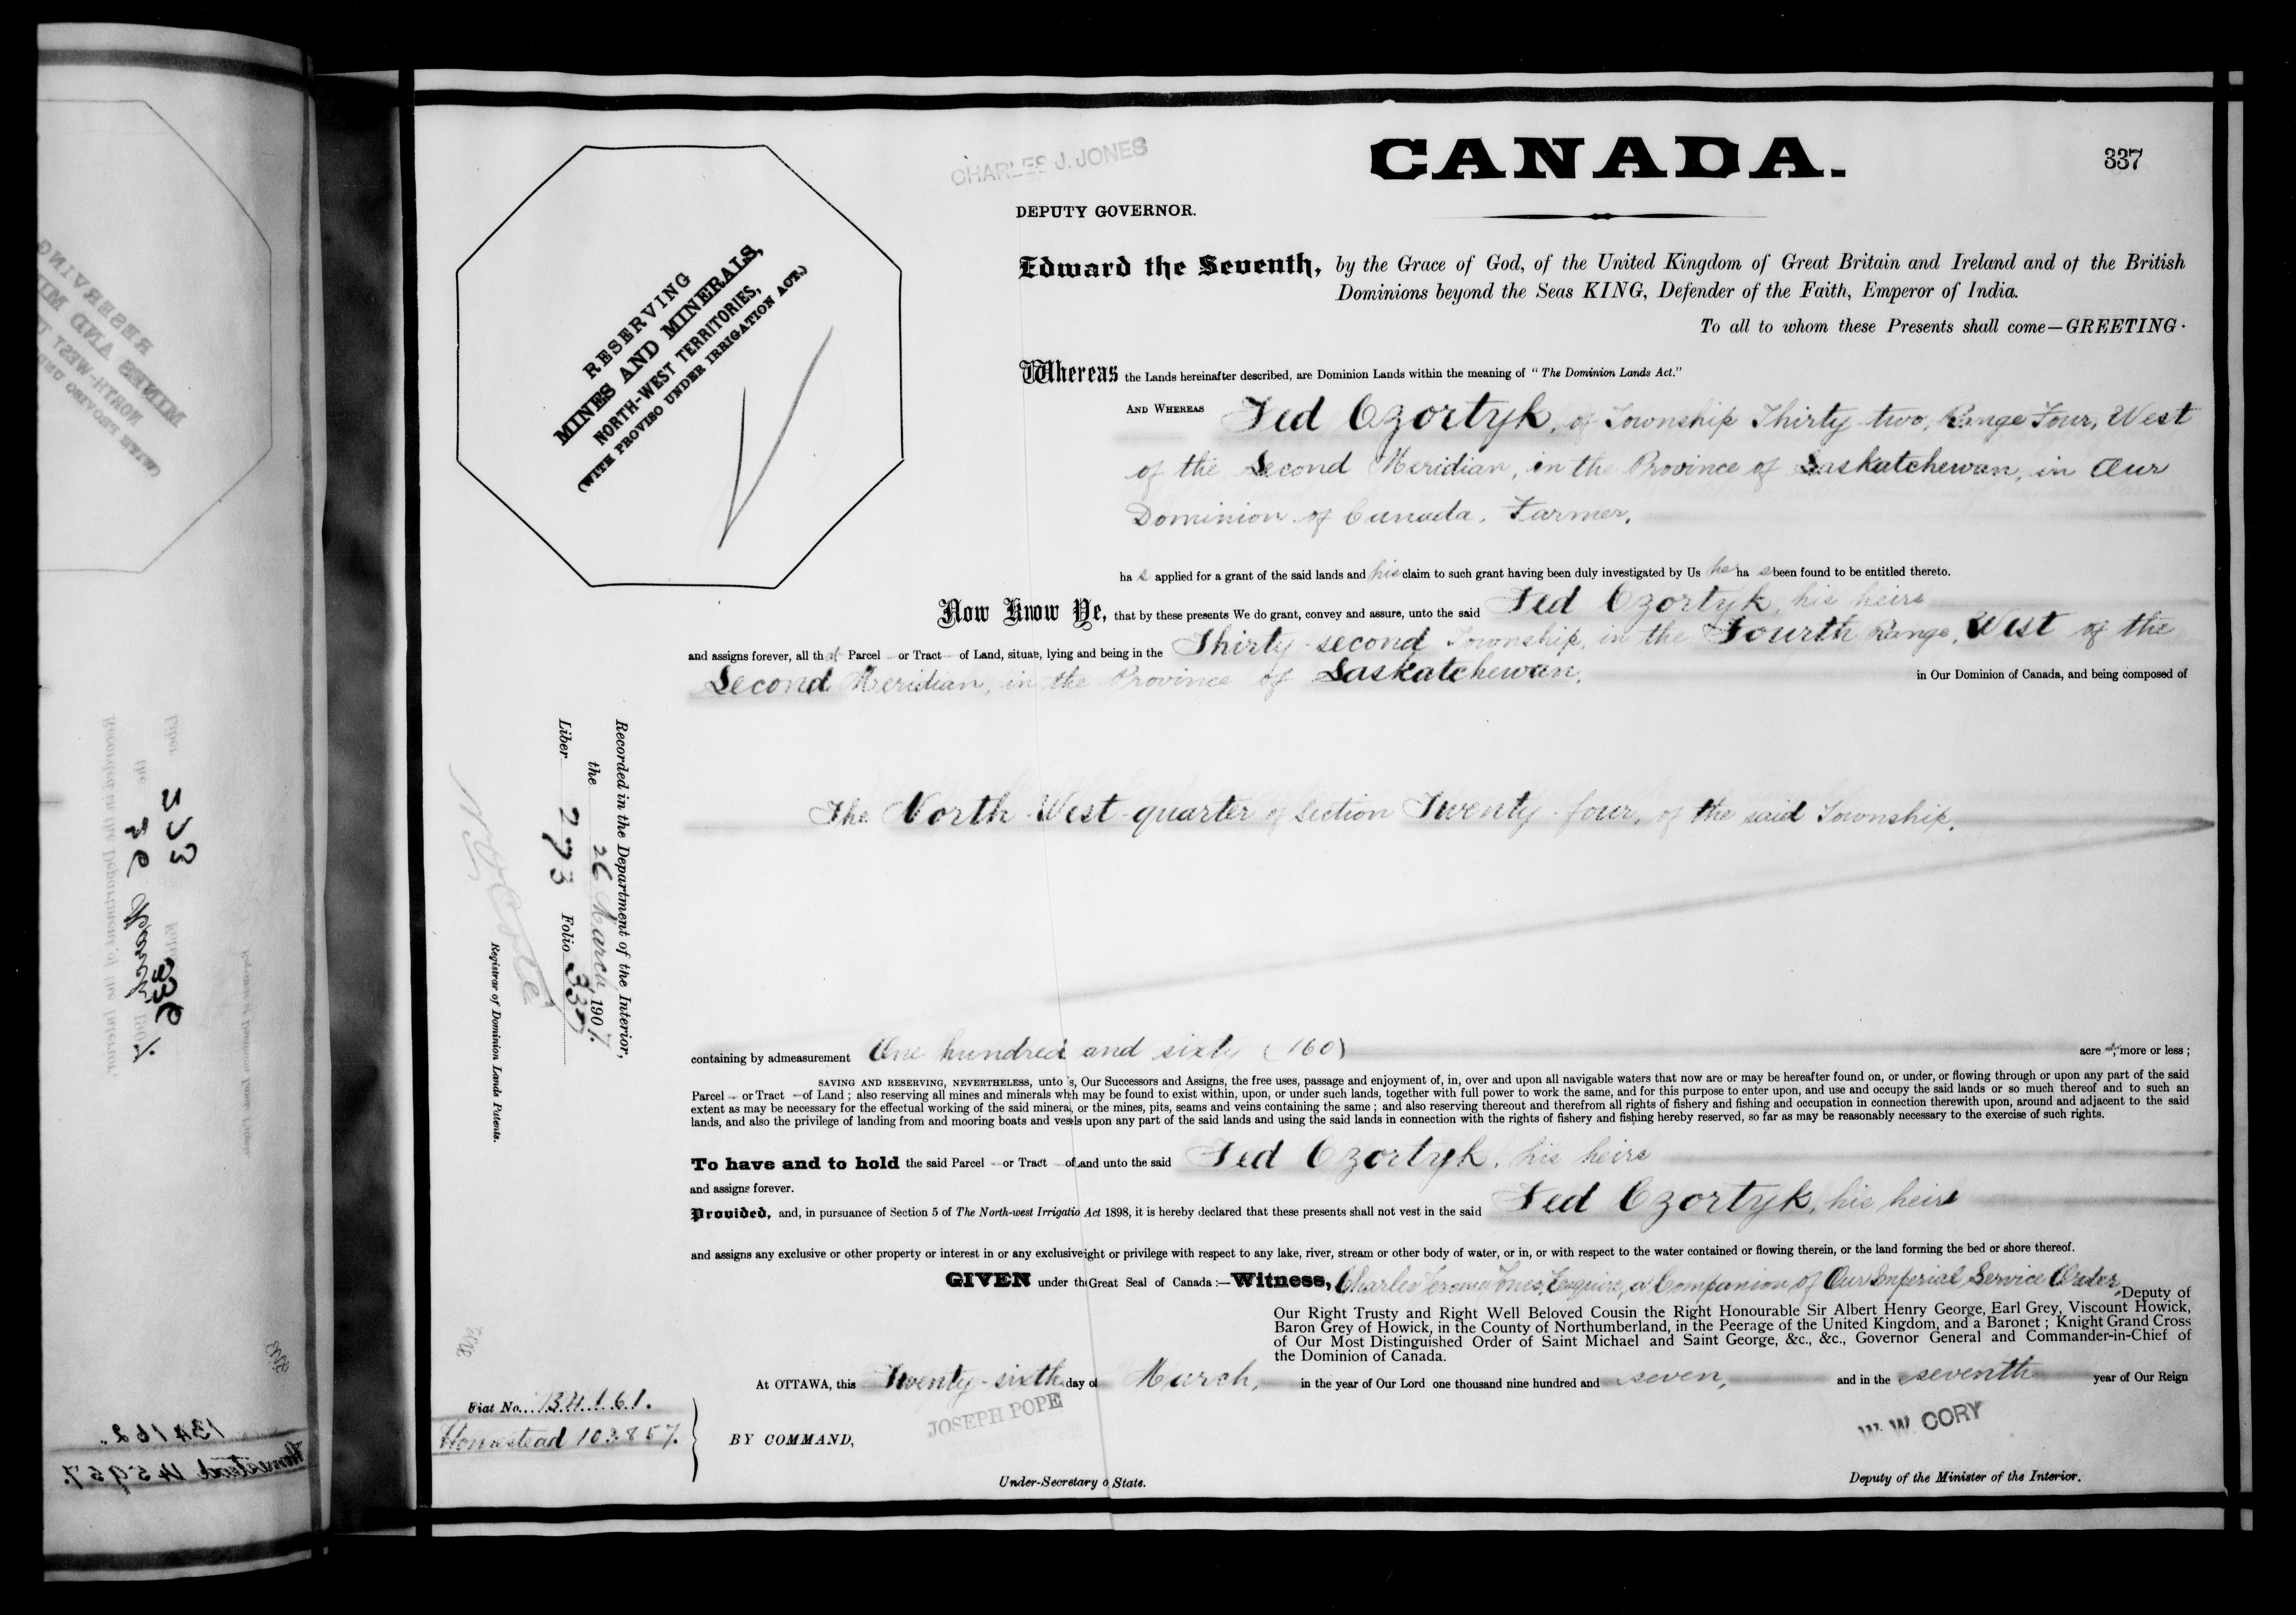 CHARLES J. JONES
CANADA.
337
DEPUTY GOVERNOR.
RESERVING
MINES AND MINERALS,
NORTH-WEST TERRITORIES,
(WITH PROVISO UNDER IRRIGATION ACT.)
Edward the Seventh, by the Grace of God, of the United Kingdom of Great Britain and Ireland and of the British
Dominions beyond the Seas KING, Defender of the Faith, Emperor of India.
To all to whom these Presents shall come—GREETING·
Whereas the Lands hereinafter described, are Dominion Lands within the meaning of "The Dominion Lands Act."
AND WHEREAS Fed Czortyk, of Township Thirty-two, Range Four, West
of the Second Meridian, in the Province of Saskatchewan, in Our
Dominion of Canada, Farmer,
ha s applied for a grant of the said lands and his claim to such grant having been duly investigated by Us he ha s been found to be entitled thereto.
Now Know Ye, that by these presents We do grant, convey and assure, unto the said Fed Czortyk, his heirs
and assigns forever, all that Parcel or Tract of Land, situate, lying and being in the Thirty-second Township, in the Fourth Range, West of the
Second Meridian, in the Province of Saskatchewan, in Our Dominion of Canada, and being composed of
The North West quarter of Section Twenty-four, of the said Township,
containing by admeasurement One hundred and sixty (160) acres, more or less ;
SAVING AND RESERVING, NEVERTHELESS, unto s, Our Successors and Assigns, the free uses, passage and enjoyment of, in, over and upon all navigable waters that now are or may be hereafter found on, or under, or flowing through or upon any part of the said
Parcel or Tract of Land ; also reserving all mines and minerals whh may be found to exist within, upon, or under such lands, together with full power to work the same, and for this purpose to enter upon, and use and occupy the said lands or so much thereof and to such an
extent as may be necessary for the effectual working of the said minera, or the mines, pits, seams and veins containing the same ; and also reserving thereout and therefrom all rights of fishery and fishing and occupation in connection therewith upon, around and adjacent to the said
lands, and also the privilege of landing from and mooring boats and vesels upon any part of the said lands and using the said lands in connection with the rights of fishery and fishing hereby reserved, so far as may be reasonably necessary to the exercise of such rights.
To have and to hold the said Parcel or Tract of Land unto the said Fed Czortyk, his heirs
and assigns forever.
Provided, and, in pursuance of Section 5 of The North-west Irrigatio Act 1898, it is hereby declared that these presents shall not vest in the said Fed Czortyk, his heirs
and assigns any exclusive or other property or interest in or any exclusive ight or privilege with respect to any lake, river, stream or other body of water, or in, or with respect to the water contained or flowing therein, or the land forming the bed or shore thereof.
GIVEN under the Great Seal of Canada :—Witness, Charles Jerome Jones, Esquire, a Companion of Our Imperial Service Order, Deputy of
Our Right Trusty and Right Well Beloved Cousin the Right Honourable Sir Albert Henry George, Earl Grey, Viscount Howick,
Baron Grey of Howick, in the County of Northumberland, in the Peerage of the United Kingdom, and a Baronet ; Knight Grand Cross
of Our Most Distinguished Order of Saint Michael and Saint George, &c., &c., Governor General and Commander-in-Chief of
the Dominion of Canada.
At OTTAWA, this Twenty-sixth day of March, in the year of Our Lord one thousand nine hundred and seven, and in the seventh year of Our Reign
JOSEPH POPE
W. W. CORY
BY COMMAND,
Under-Secretary o State.
Deputy of the Minister of the Interior.
Fiat No. 134161.
Homestead 103857.
Recorded in the Department of the Interior,
the 26 March, 1907.
Liber 273 Folio 337
N O Coté
Registrar of Dominion Lands Patents.
134162.
Homestead 145957.